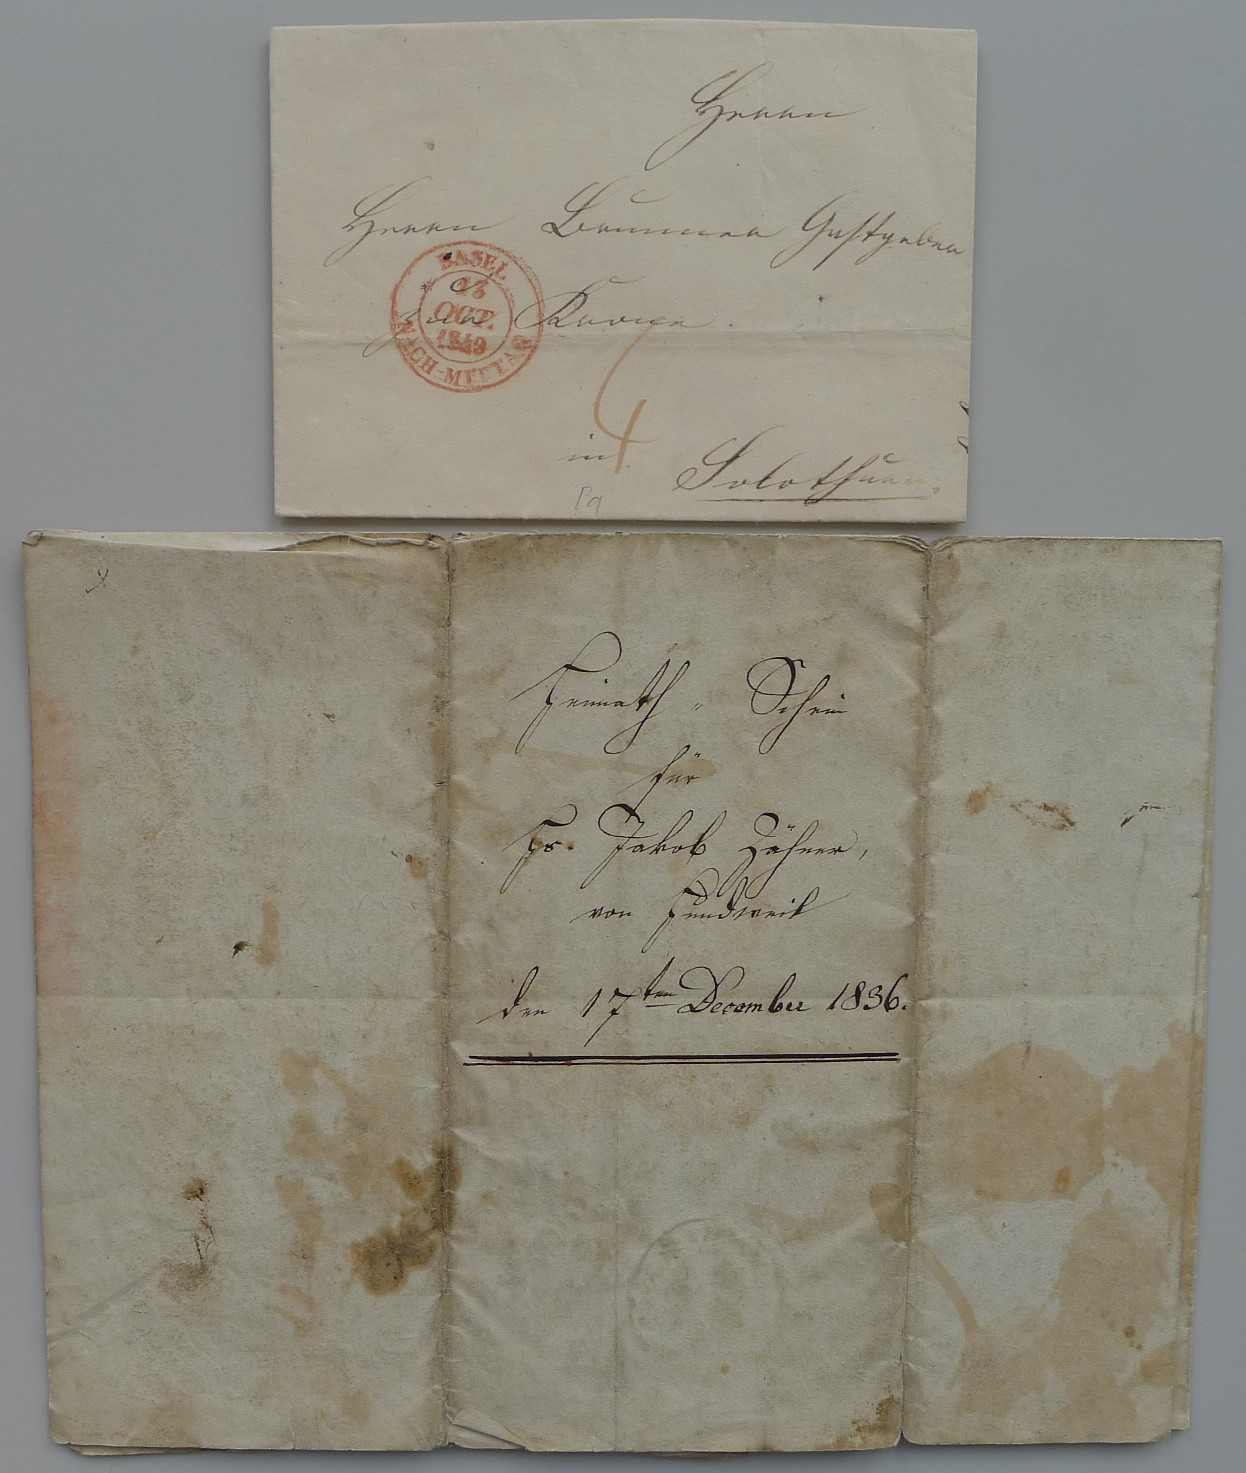 Herrn
Herrn Brunner Gastgeber
zur Krone.
in
Solothurn.
BASEL
OCT.
1849
NACH-MITTAG
4
Heimath- Schein
für
Hs. Jakob Zähner,
von Hundweil
den 17ten December 1836.